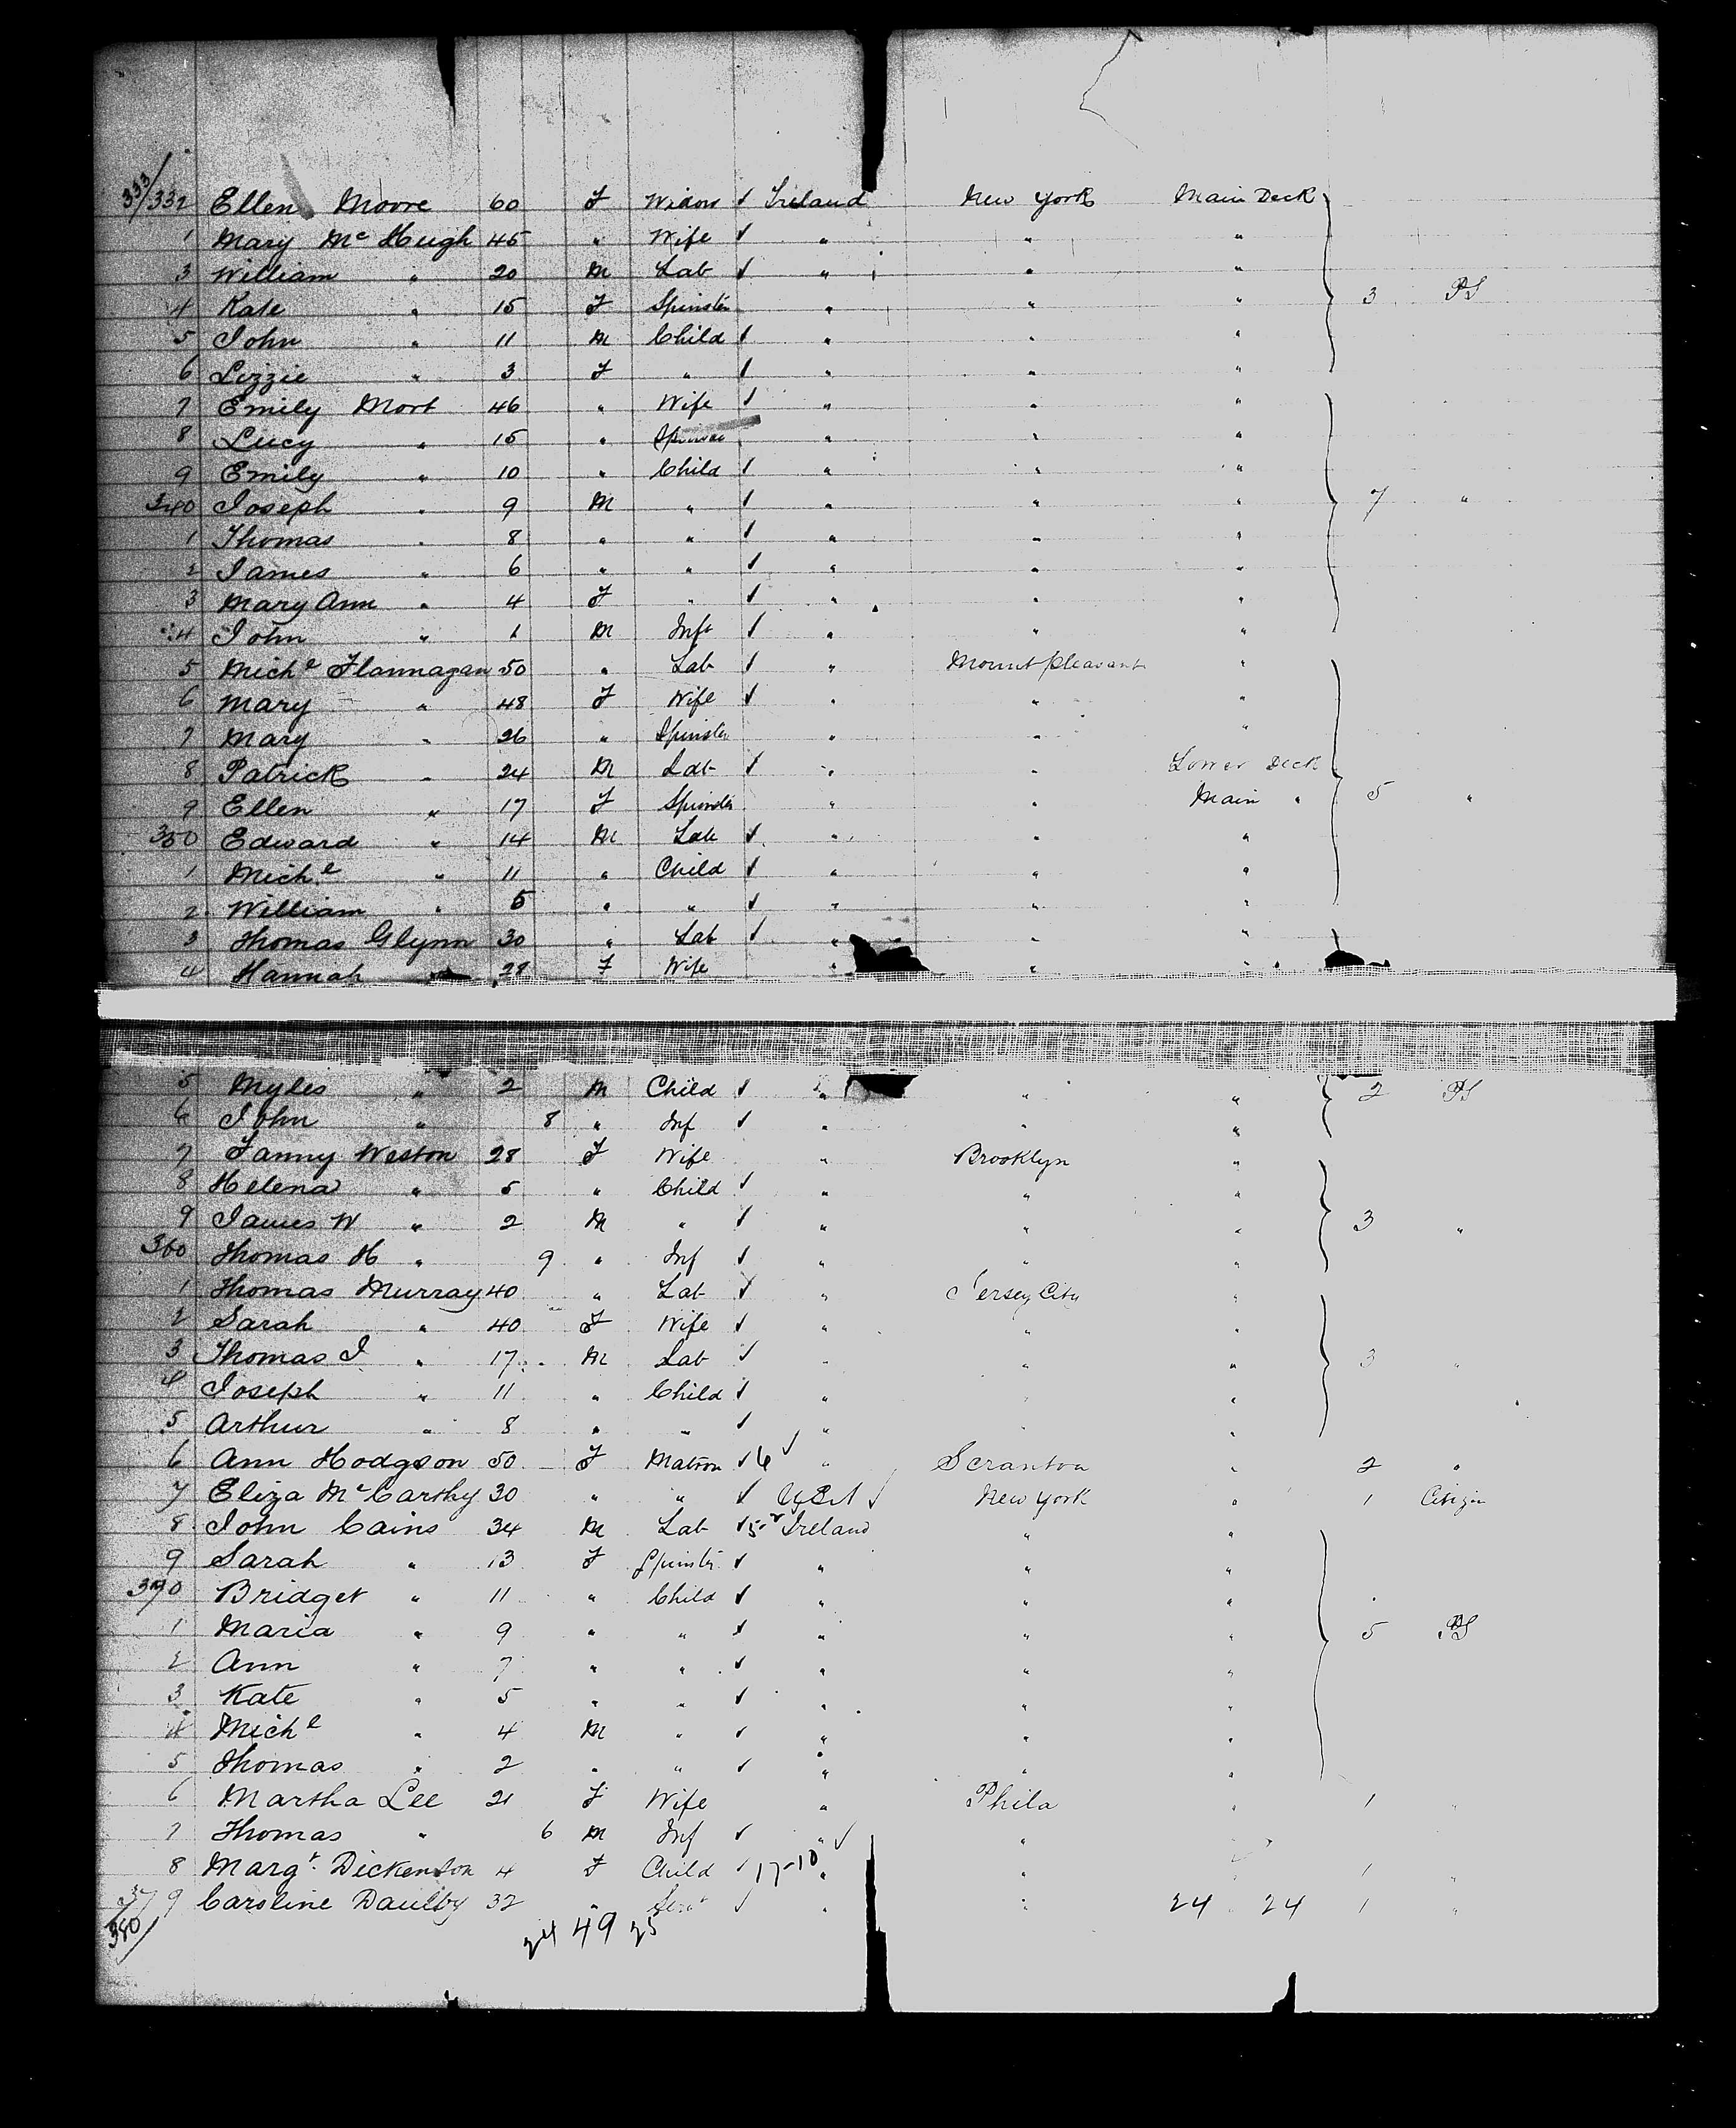 333/332 Ellen Moore 60 F Widow ✓ Ireland New York Main Deck
1 Mary Mc Hugh 45 " Wife ✓ " " "
3 William " 20 M Lab ✓ " " "
4 Kate " 15 F Spinster " " " 3 PS
5 John " 11 M Child ✓ " " "
6 Lizzie " 3 F " ✓ " " "
7 Emily Mort 46 " Wife ✓ " " "
8 Lucy " 15 " " " "
9 Emily " 10 " Child ✓ " " "
340 Joseph " 9 M " ✓ " " " 7 "
1 Thomas " 8 " " ✓ " " "
2 James " 6 " " ✓ " " "
3 Mary Ann " 4 F " ✓ " " "
4 John " 1 M Inft ✓ " " "
5 Michl Flannagan 50 " Lab ✓ " Mount pleasant "
6 Mary " 48 F Wife ✓ " " "
7 Mary " 26 " Spinster " " "
8 Patrick " 24 M Lab ✓ " " Lower Deck
9 Ellen " 17 F Spinster " " Main " 5 "
350 Edward " 14 M Lab ✓ " " "
1 Michl " 11 " Child ✓ " " "
2 William " 5 " " ✓ " " "
3 Thomas Glynn 30 " Lab ✓ " " "
4 Hannah " 28 F Wife " " "
5 Myles " 2 M Child ✓ " " " 2 PS
6 John " 8 " Inf ✓ " " "
7 Fanny Weston 28 F Wife " Brooklyn "
8 Helena " 5 " Child ✓ " " "
9 James W " 2 M " ✓ " " " 3 "
360 Thomas H " 9 " Inf ✓ " " "
1 Thomas Murray 40 " Lab ✓ " Jersey City "
2 Sarah " 40 F Wife ✓ " " "
3 Thomas J " 17 M Lab ✓ " " " 3 "
4 Joseph " 11 " Child ✓ " " "
5 Arthur " 8 " " ✓ " " "
6 Ann Hodgson 50 F Matron ✓ 6 ✓ " Scranton " 2 "
7 Eliza Mc Carthy 30 " " ✓ ✓ New York " 1 Citizen
8 John Cains 34 M Lab ✓ Ireland " "
9 Sarah " 13 F Spinster ✓ " " "
370 Bridget " 11 " Child ✓ " " "
1 Maria " 9 " " ✓ " " " 5 PS
2 Ann " 7 " " ✓ " " "
3 Kate " 5 " " ✓ " " "
4 Michl " 4 M " ✓ " " "
5 Thomas " 2 " " ✓ " " "
6 Martha Lee 21 F Wife " Phila " 1 "
7 Thomas " 6 M Inf ✓ " ✓ "
8 Margt Dickenson 4 F Child ✓ 17-10 " " 1 "
379 Caroline Daulby 32 " Servt ✓ " " 24 24 1 "
380 24 49 25